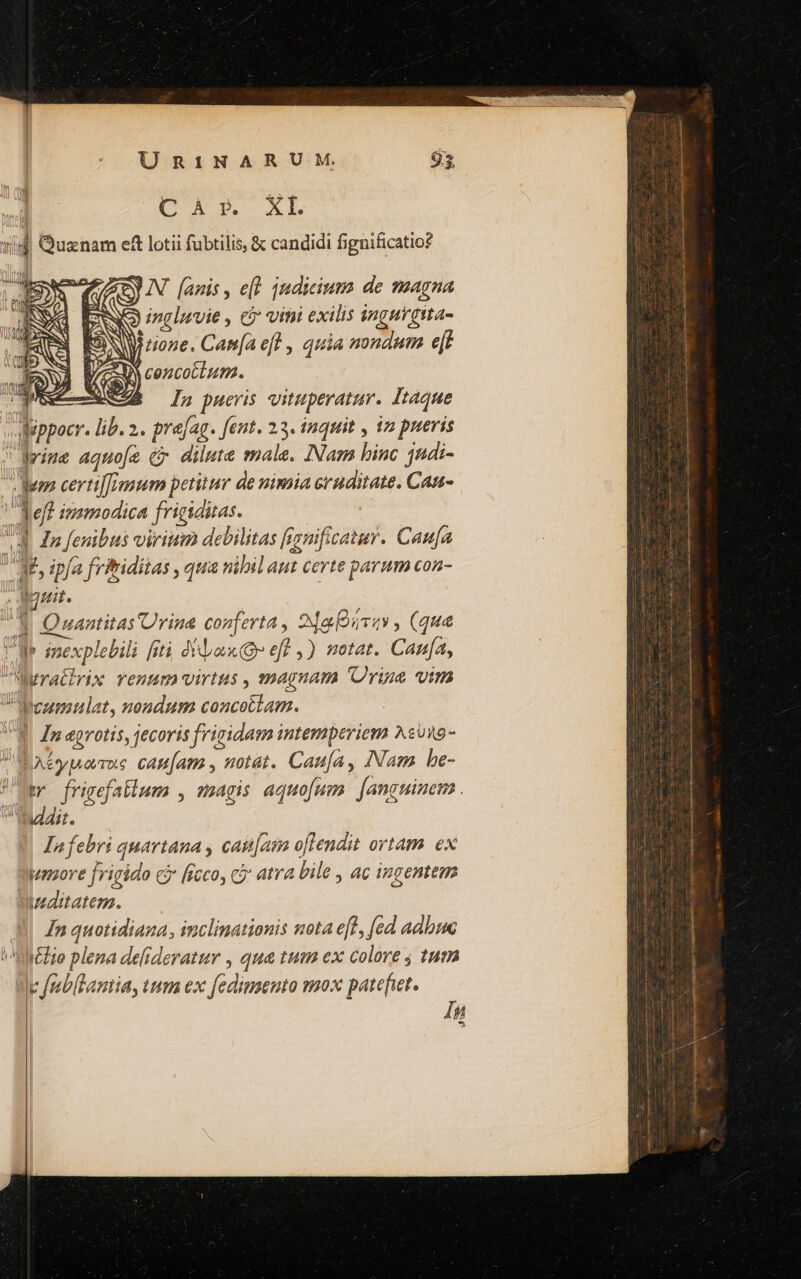 URINARUM. 93
CAP. XI.
Quænam eſt lotii ſubtilis, & candidi ſignificatio?
IN ſanis, eſt judicium de magna
ingluvie, & vini exilis ingurgita-
tione. Cauſa eſt, quia nondum eſt
concoctum.
In pueris vituperatur. Itaque
Hippocr. lib. 2. præſag. ſent. 23. inquit, in pueris
urinæ aquoſæ & dilutæ malæ. Nam hinc judi-
certiſſimum petitur de nimia cruditate. Cau-
eſt immodica frigiditas.
In ſenibus virium debilitas ſignificatur. Cauſa
ipſa frigiditas, qua nihil aut certe parum con-
quit.
Quantitas Urinæ conferta, (quæ
inexplebili ſiti eſt,) notat. Cauſa,
attractrix renum virtus, magnam Urinæ vim
cumulat, nondum concoctam.
In ægrotis, jecoris frigidam intemperiem λευκο-
φλέγματος cauſam, notat. Cauſa, Nam he-
frigefactum, magis aquoſum ſanguinem
addit.
In febri quartana, cauſam oſtendit ortam ex
humore frigido & ſicco, & atra bile, ac ingentem
cruditatem.
In quotidiana, inclinationis nota eſt, ſed adhuc
plena deſideratur, quæ tum ex colore, tum
ſubſtantia, tum ex ſedimento mox patefiet.
In